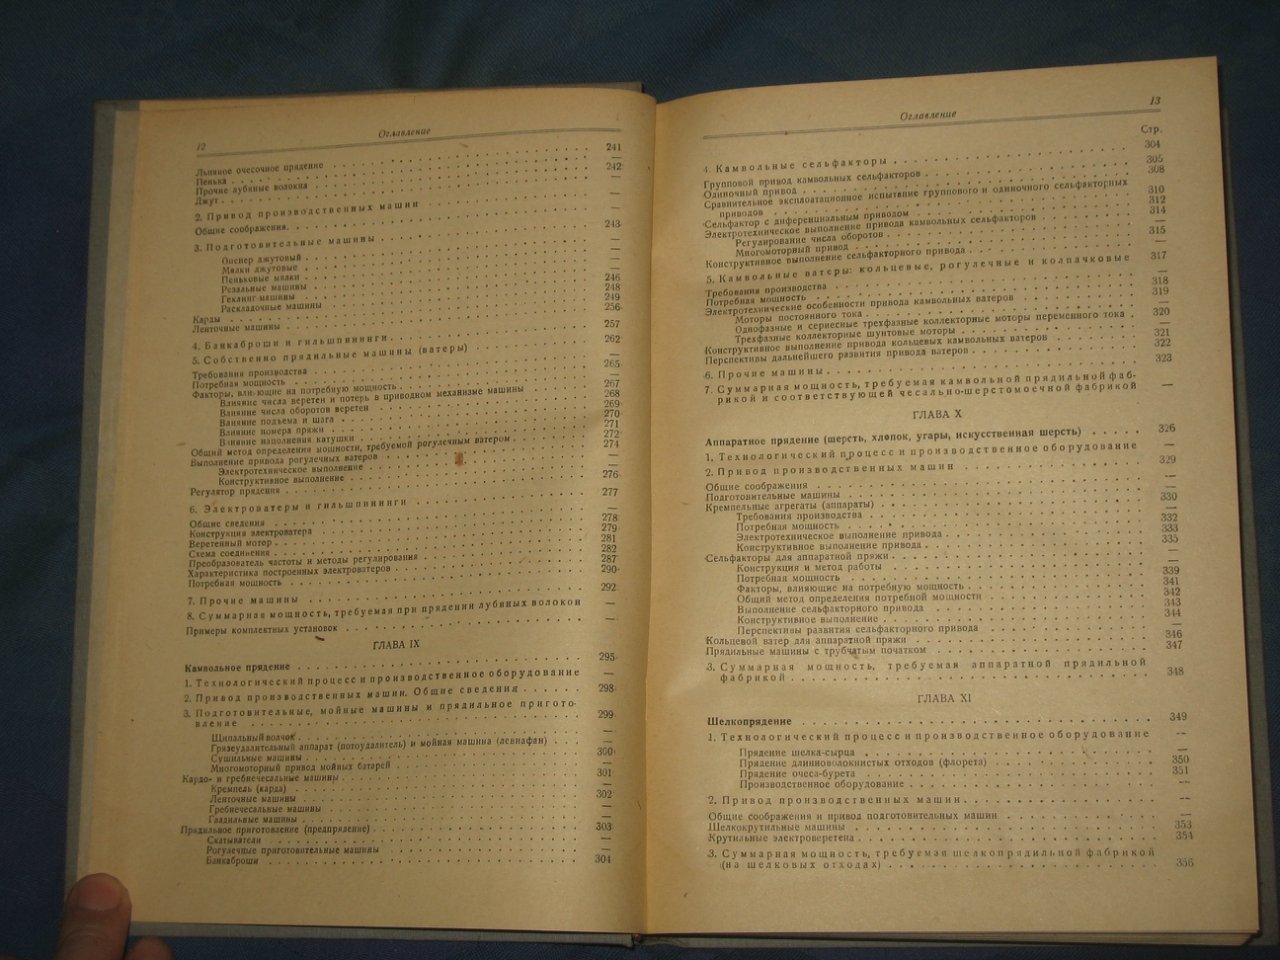 12
Оглавление
Льняное очесочное прядение . . . 241
Пенька . . . —
Прочие лубяные волокна . . . 242
Джут . . . —
2. Привод производственных машин
Общие соображения . . . —
3. Подготовительные машины . . . 243
Опенер джутовый . . . —
Мялки джутовые . . . —
Пеньковые мялки . . . —
Резальные машины . . . 246
Геклинг-машины . . . 248
Раскладочные машины . . . 249
Карды . . . 256
Ленточные машины . . . —
4. Банкаброши и гильшпининги . . . 257
5. Собственно прядильные машины (ватеры) . . . 262
Требования производства . . . —
Потребная мощность . . . 265
Факторы, влияющие на потребную мощность . . . —
Влияние числа веретен и потерь в приводном механизме машины . . . 267
Влияние числа оборотов веретен . . . 268
Влияние подъема и шага . . . 269
Влияние номера пряжи . . . 270
Влияние наполнения катушки . . . 271
Общий метод определения мощности, требуемой рогулечным ватером . . . 272
Выполнение привода рогулечных ватеров . . . 274
Электротехническое выполнение . . . —
Конструктивное выполнение . . . —
Регулятор прядения . . . 276
6. Электроватеры и гильшпининги . . . 277
Общие сведения . . . —
Конструкция электроватера . . . 278
Веретенный мотор . . . 279
Схема соединения . . . 281
Преобразователь частоты и методы регулирования . . . 282
Характеристика построенных электроватеров . . . 287
Потребная мощность . . . 290
7. Прочие машины . . . 292
8. Суммарная мощность, требуемая при прядении лубяных волокон —
Примеры комплектных установок . . . —
ГЛАВА IX
Камвольное прядение . . . 295
1. Технологический процесс и производственное оборудование —
2. Привод производственных машин. Общие сведения . . . 298
3. Подготовительные, мойные машины и прядильное приготовление . . . 299
Щипальный волчок . . . —
Грязеудалительный аппарат (потоудалитель) и мойная машина (левиафан) . . . —
Сушильные машины . . . 300
Многомоторный привод мойных батарей . . . —
Кардо- и гребнечесальные машины . . . 301
Кремпель (карда) . . . —
Ленточные машины . . . 302
Гребнечесальные машины . . . —
Гладильные машины . . . —
Прядильное приготовление (предпрядение) . . . 303
Скатыватели . . . —
Рогулечные приготовительные машины . . . —
Банкаброши . . . 304
Оглавление
13
Стр.
4. Камвольные сельфакторы . . . 304
Групповой привод камвольных сельфакторов . . . 305
Одиночный привод . . . 308
Сравнительное эксплоатационное испытание группового и одиночного сельфакторных
приводов . . . 310
Сельфактор с диференциальным приводом . . . 312
Электротехническое выполнение привода камвольных сельфакторов . . . 314
Регулирование числа оборотов . . . —
Многомоторный привод . . . 315
Конструктивное выполнение сельфакторного привода . . . —
5. Камвольные ватеры: кольцевые, рогулечные и колпачковые 317
Требования производства . . . —
Потребная мощность . . . 318
Электротехнические особенности привода камвольных ватеров . . . 319
Моторы постоянного тока . . . —
Однофазные и сериесные трехфазные коллекторные моторы переменного тока . 320
Трехфазные коллекторные шунтовые моторы . . . —
Конструктивное выполнение привода кольцевых камвольных ватеров . . . 321
Перспективы дальнейшего развития привода ватеров . . . 322
6. Прочие машины . . . 323
7. Суммарная мощность, требуемая камвольной прядильной фаб-
рикой и соответствующей чесально-шерстомоечной фабрикой —
ГЛАВА X
Аппаратное прядение (шерсть, хлопок, угары, искусственная шерсть) . . . 326
1. Технологический процесс и производственное оборудование —
2. Привод производственных машин . . . 329
Общие соображения . . . —
Подготовительные машины . . . —
Кремпельные агрегаты (аппараты) . . . 330
Требования производства . . . —
Потребная мощность . . . 332
Электротехническое выполнение привода . . . 333
Конструктивное выполнение привода . . . 335
Сельфакторы для аппаратной пряжи . . . —
Конструкция и метод работы . . . —
Потребная мощность . . . 339
Факторы, влияющие на потребную мощность . . . 341
Общий метод определения потребной мощности . . . 342
Выполнение сельфакторного привода . . . 343
Конструктивное выполнение . . . 344
Перспективы развития сельфакторного привода . . . —
Кольцевой ватер для аппаратной пряжи . . . 346
Прядильные машины с трубчатым початком . . . 347
3. Суммарная мощность, требуемая аппаратной прядильной
фабрикой . . . 348
ГЛАВА XI
Шелкопрядение . . . 349
1. Технологический процесс и производственное оборудование —
Прядение шелка-сырца . . . —
Прядение длинноволокнистых отходов (флорета) . . . 350
Прядение очеса-бурета . . . 351
Производственное оборудование . . . —
2. Привод производственных машин . . . —
Общие соображения и привод подготовительных машин . . . —
Шелкокрутильные машины . . . 353
Крутильные электроверетена . . . 354
3. Суммарная мощность, требуемая шелкопрядильной фабрикой
(на шелковых отходах) . . . 356